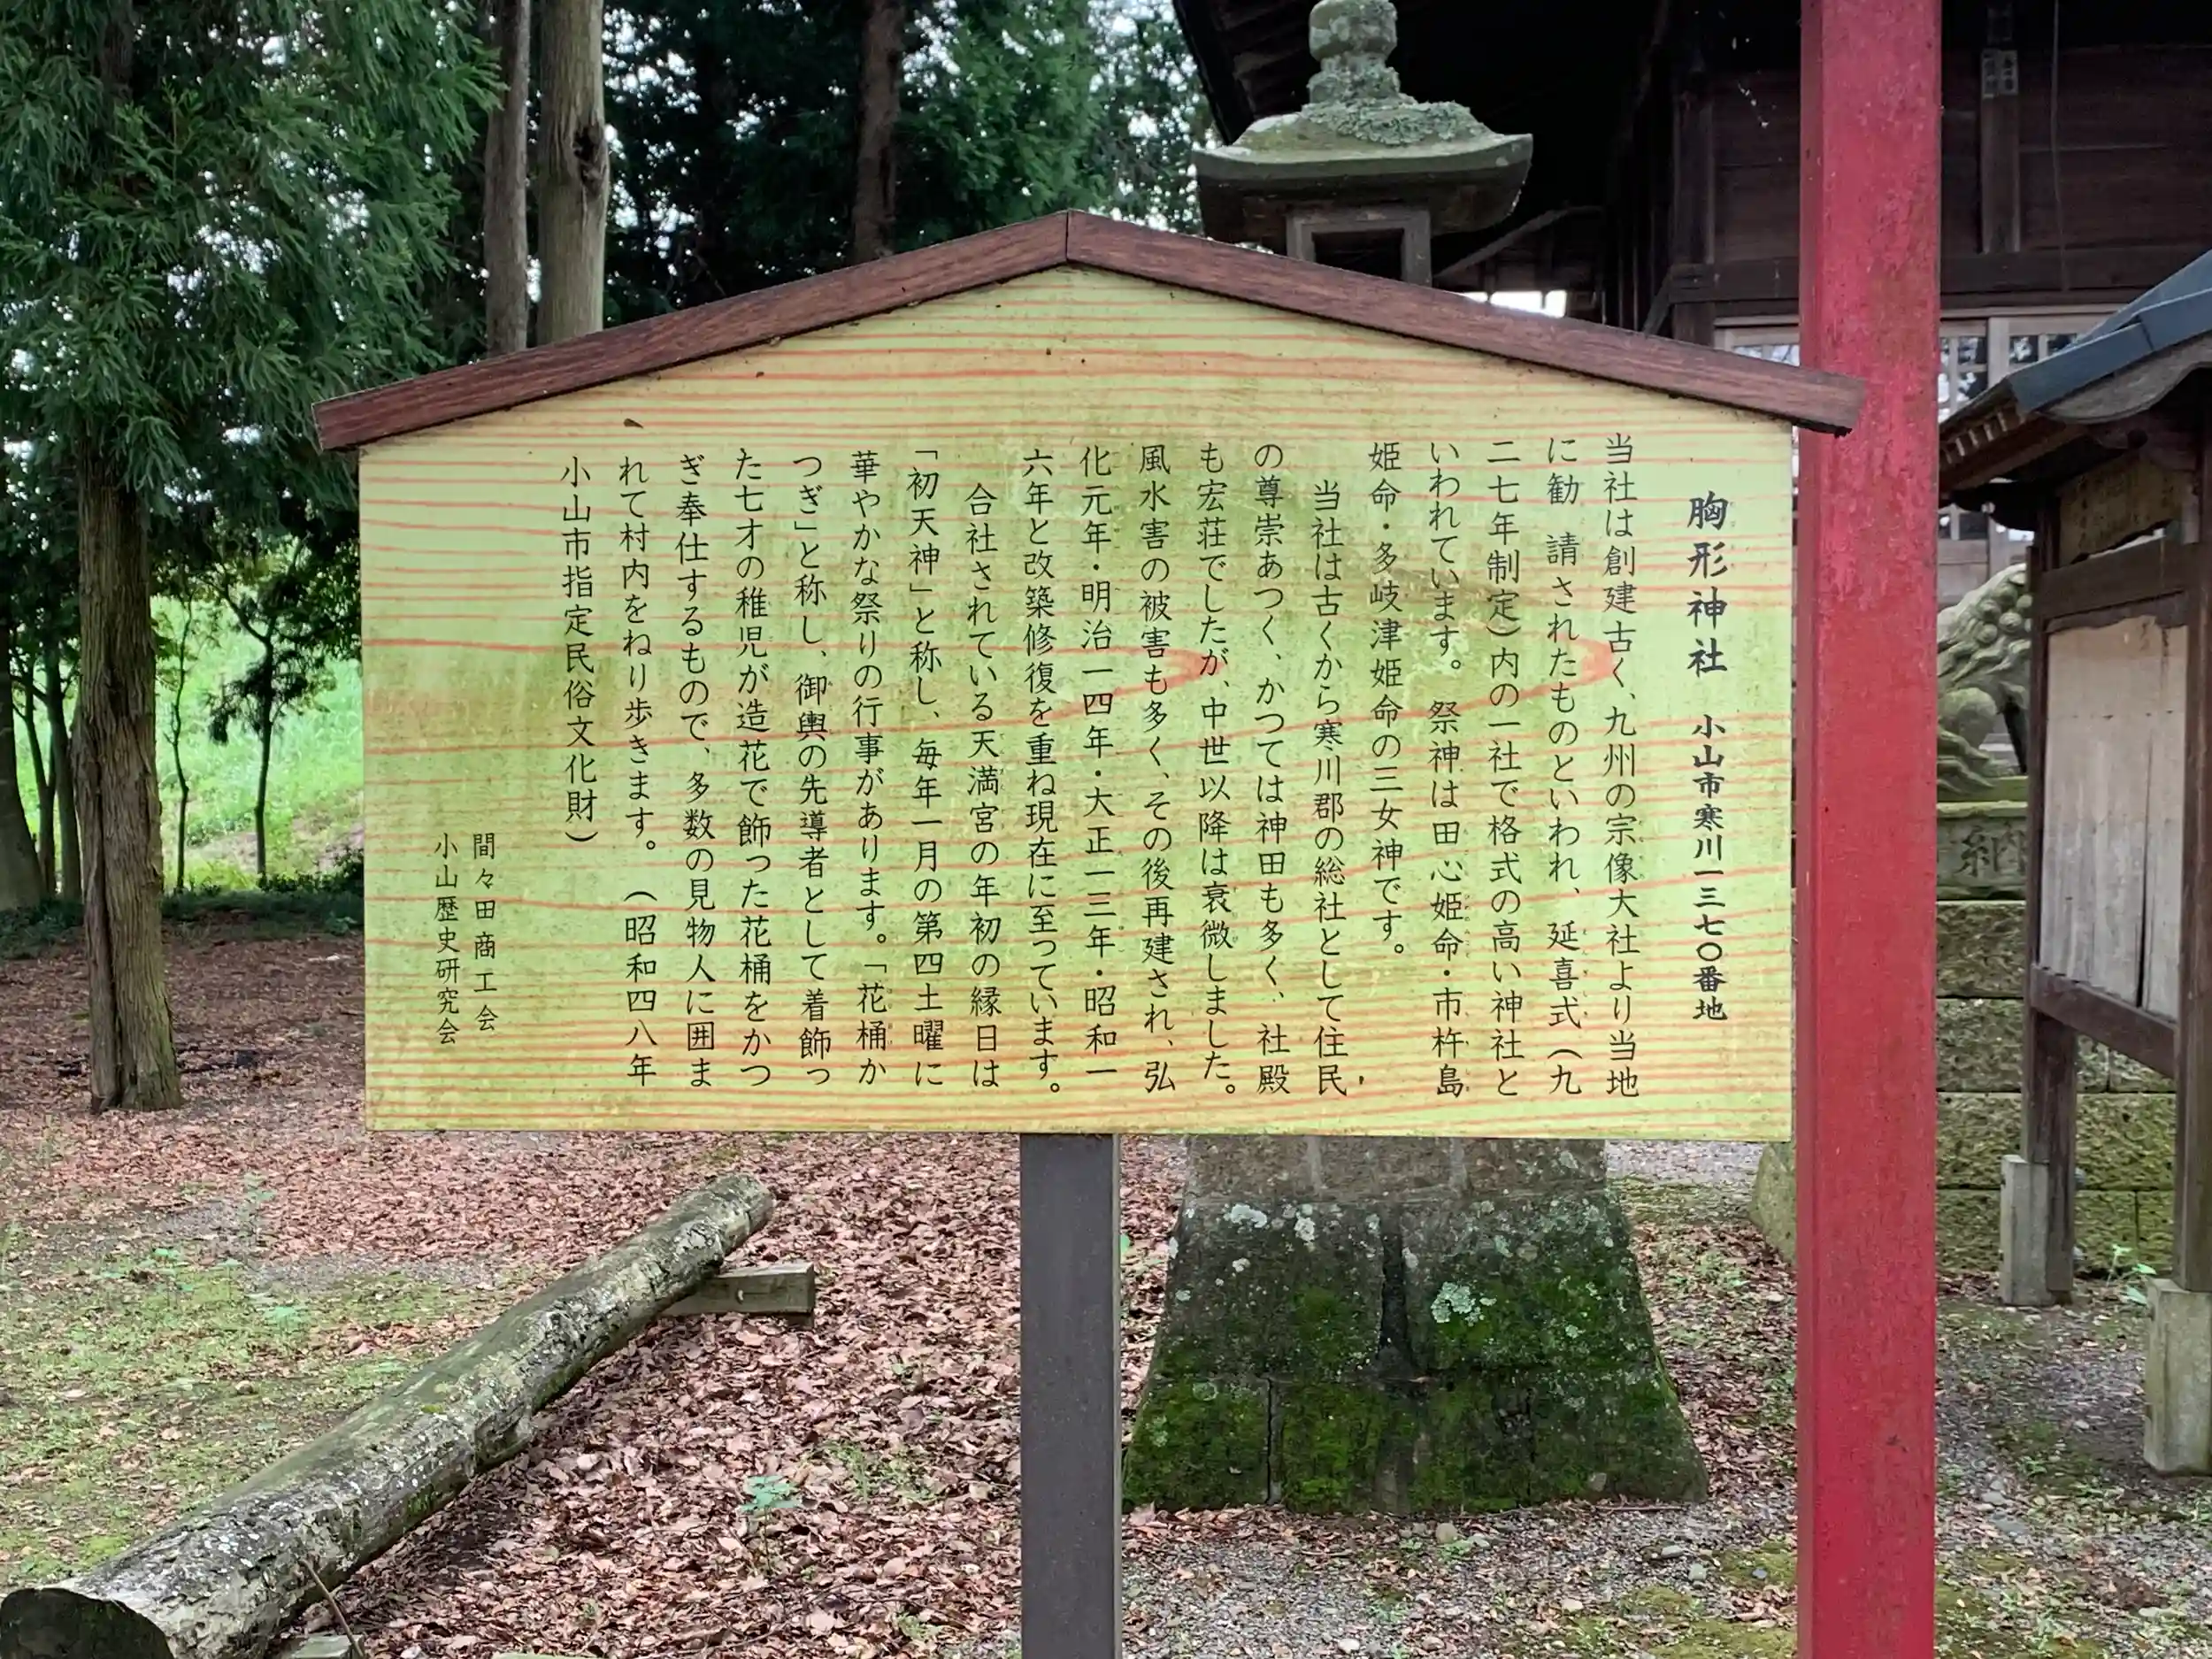 胸形神社 小山市寒川一三七〇番地
当社は創建古く、九州の宗像大社より当地
に勧 請されたものといわれ、延喜式（九
二七年制定）内の一社で格式の高い神社と
いわれています。祭神は田心姫命・市杵島
姫命・多岐津姫命の三女神です。
当社は古くから寒川郡の総社として住民
の尊崇あつく、かつては神田も多く、社殿
も宏荘でしたが、中世以降は衰微しました。
風水害の被害も多く、その後再建され、弘
化元年・明治一四年・大正一三年・昭和一
六年と改築修復を重ね現在に至っています。
合社されている天満宮の年初の縁日は
「初天神」と称し、毎年一月の第四土曜に
華やかな祭りの行事があります。「花桶か
つぎ」と称し、御輿の先導者として着飾っ
た七才の稚児が造花で飾った花桶をかつ
ぎ奉仕するもので、多数の見物人に囲ま
れて村内をねり歩きます。（昭和四八年
小山市指定民俗文化財）
間々田商工会
小山歴史研究会
納